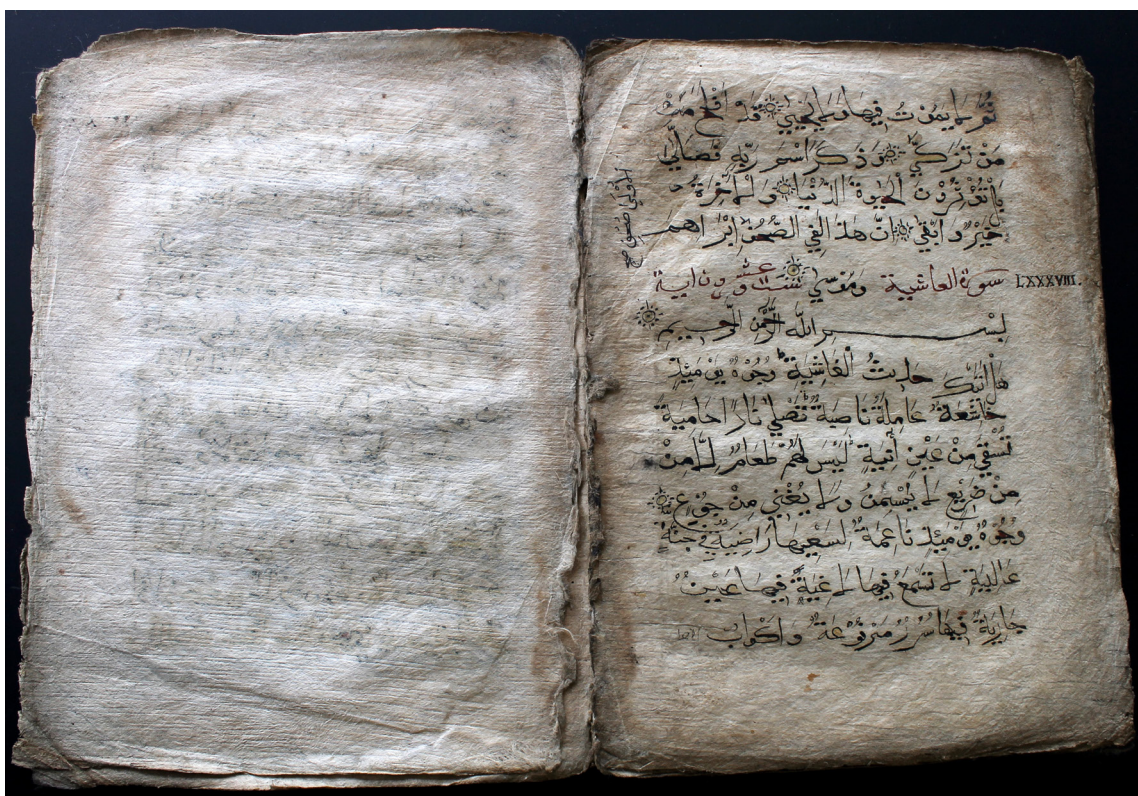 ثُمَّ لَا يَمُوْتُ فِيهَا وَلَا يَحْيٰي قَدْ اَفْلَحَ مَنْ
مَنْ تَزَكّٰي وَ ذَكَرَ اسْمَ رَبِّهٖ فَصَلّٰي
بَلْ تُوْثِرُوْنَ الْحَيٰوةَ الدُّنْيَا وَ لْاٰخِرَةُ
خَيْرٌ وَ اَبْقٰي اِنَّ هٰذَا لَفِي الصُّحُفِ اِبْرَاهِيْمَ
الْاُوْلٰي صُحُفِ صح
سورة الغاشية وَمُوْسٰي ست وعشرون اية
LXXXVIII.
بسم الله الرحمن الرحيم
هَلْ اَتٰىكَ حَدِيْثُ الْغَاشِيَةِ وُجُوْهٌ يَوْمَئِذٍ
خَاشِعَةٌ عَامِلَةٌ نَاصِبَةٌ تَصْلٰي نَارًا حَامِيَةً
تُسْقٰي مِنْ عَيْنٍ اٰنِيَةٍ لَيْسَ لَهُمْ طَعَامٌ اِلَّا مِنْ
مِنْ ضَرِيْعٍ لَا يُسْمِنُ وَ لَا يُغْنِي مِنْ جُوْعٍ
وُجُوْهٌ يَوْمَئِذٍ نَاعِمَةٌ لِسَعْيِهَا رَاضِيَةٌ فِي جَنَّةٍ
عَالِيَةٍ لَا تَسْمَعُ فِيْهَا لَاغِيَةً فِيْهَا عَيْنٌ
جَارِيَةٌ فِيْهَا سُرُرٌ مَرْفُوْعَةٌ وَ اَكْوَابٌ